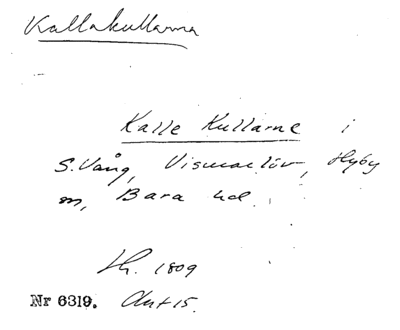 Kallakullarna
Kalle Kullarne i
S. Vång, Vismarlöv, Hyby
m, Bara hd.
Lh. 1809
Nr 6319. Akt 15.